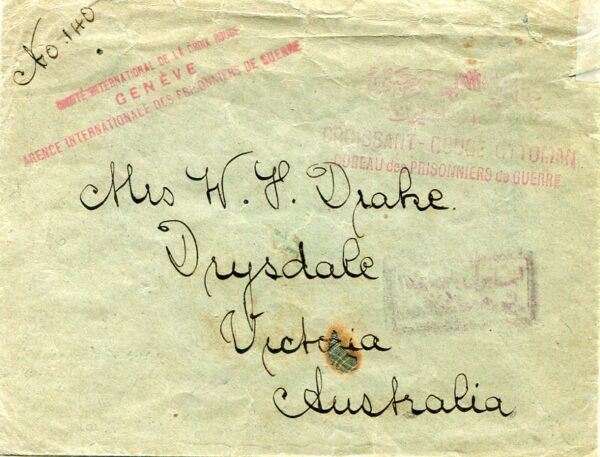 No. 140
COMITÉ INTERNATIONAL DE LA CROIX ROUGE
GENÈVE
AGENCE INTERNATIONALE DES PRISONNIERS DE GUERRE
CROISSANT-ROUGE OTTOMAN
BUREAU des PRISONNIERS de GUERRE
Mrs W. H. Drake.
Drysdale
Victoria
Australia